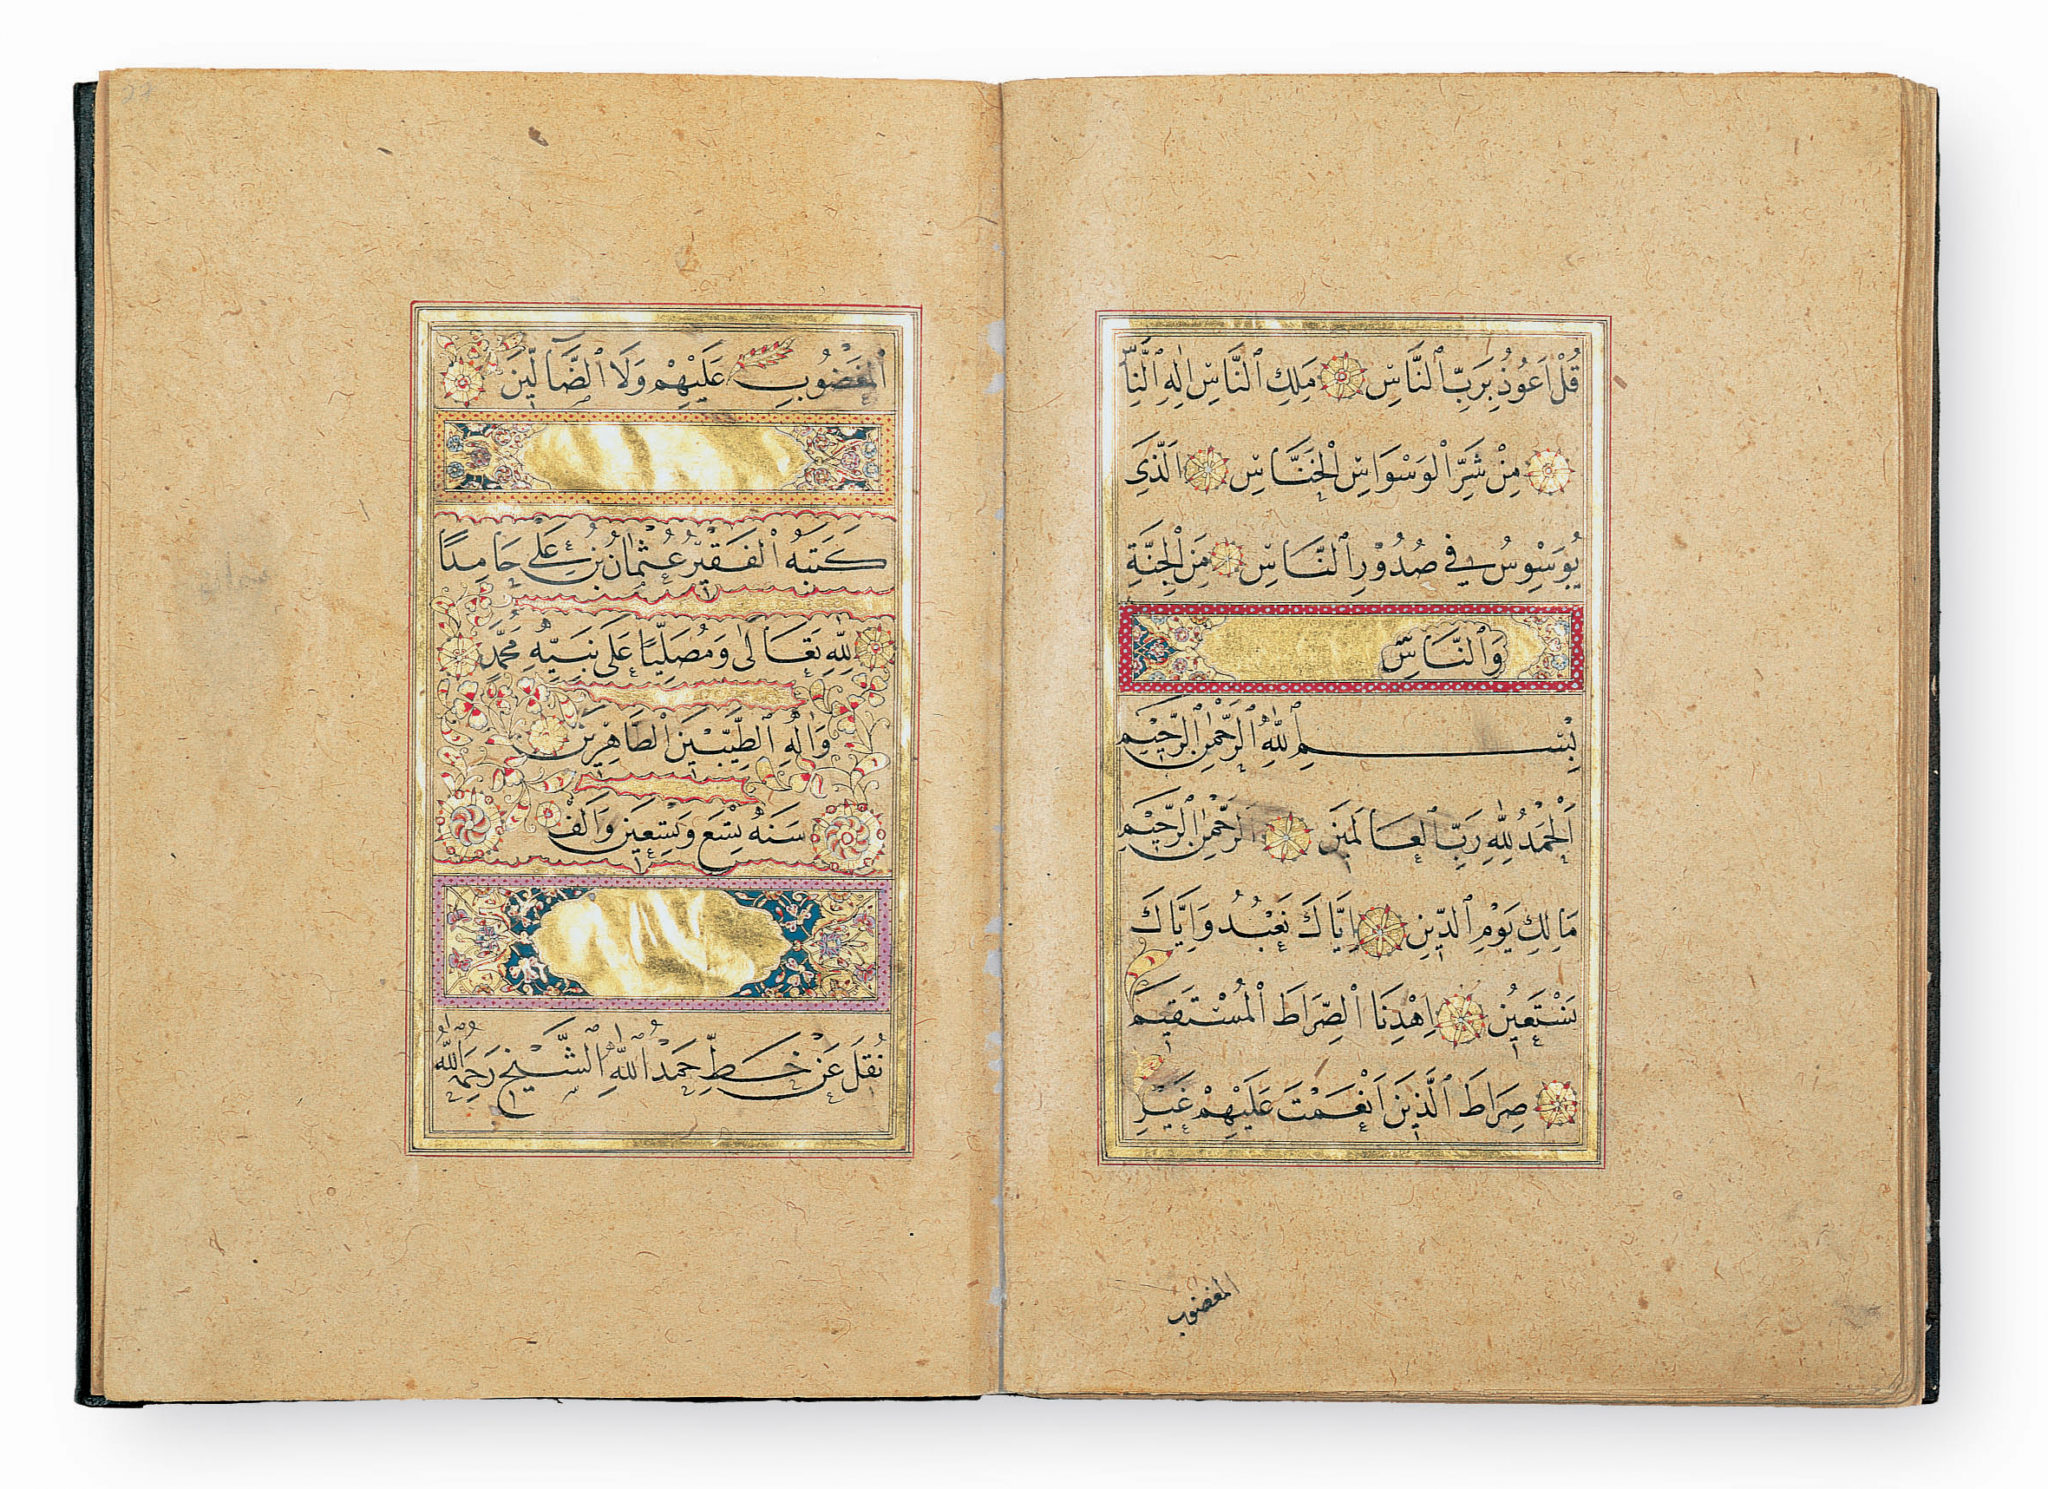 قُلْ اَعُوذُ بِرَبِّ ٱلنَّاسِ مَلِكِ ٱلنَّاسِ اِلٰهِ ٱلنَّاسِ
مِنْ شَرِّ ٱلْوَسْوَاسِ الْخَنَّاسِ اَلَّذِى
يُوَسْوِسُ فِي صُدُورِ ٱلنَّاسِ مِنَ الْجِنَّةِ
وَٱلنَّاسِ
بِسْمِ ٱللّٰهِ ٱلرَّحْمٰنِ ٱلرَّحِيْمِ
اَلْحَمْدُ لِلّٰهِ رَبِّ ٱلْعَالَمِينَ اَلرَّحْمٰنِ ٱلرَّحِيْمِ
مَالِكِ يَوْمِ ٱلدِّينِ اِيَّاكَ نَعْبُدُ وَاِيَّاكَ
نَسْتَعِينُ اِهْدِنَا ٱلصِّرَاطَ ٱلْمُسْتَقِيمَ
صِرَاطَ ٱلَّذِينَ اَنْعَمْتَ عَلَيْهِمْ غَيْرِ
المغضوب
ٱلْمَغْضُوبِ عَلَيْهِمْ وَلَا ٱلضَّآلِّينَ
كَتَبَهُ ٱلْفَقِيْرُ عُثْمَانُ بْنُ عَلِي حَامِدًا
لِلّٰهِ تَعَالٰى وَمُصَلِّيًا عَلٰى نَبِيِّهِ مُحَمَّدٍ
وَاٰلِهِ ٱلطَّيِّبِيْنَ ٱلطَّاهِرِيْنَ
سَنَهُ تِسْعَ وَتِسْعِينَ وَاَلْفْ
نُقِلَ عَنْ خَطِّ حَمْدُ ٱللّٰهِ ٱلشَّيْخِ رَحِمَهُ ٱللّٰهُ